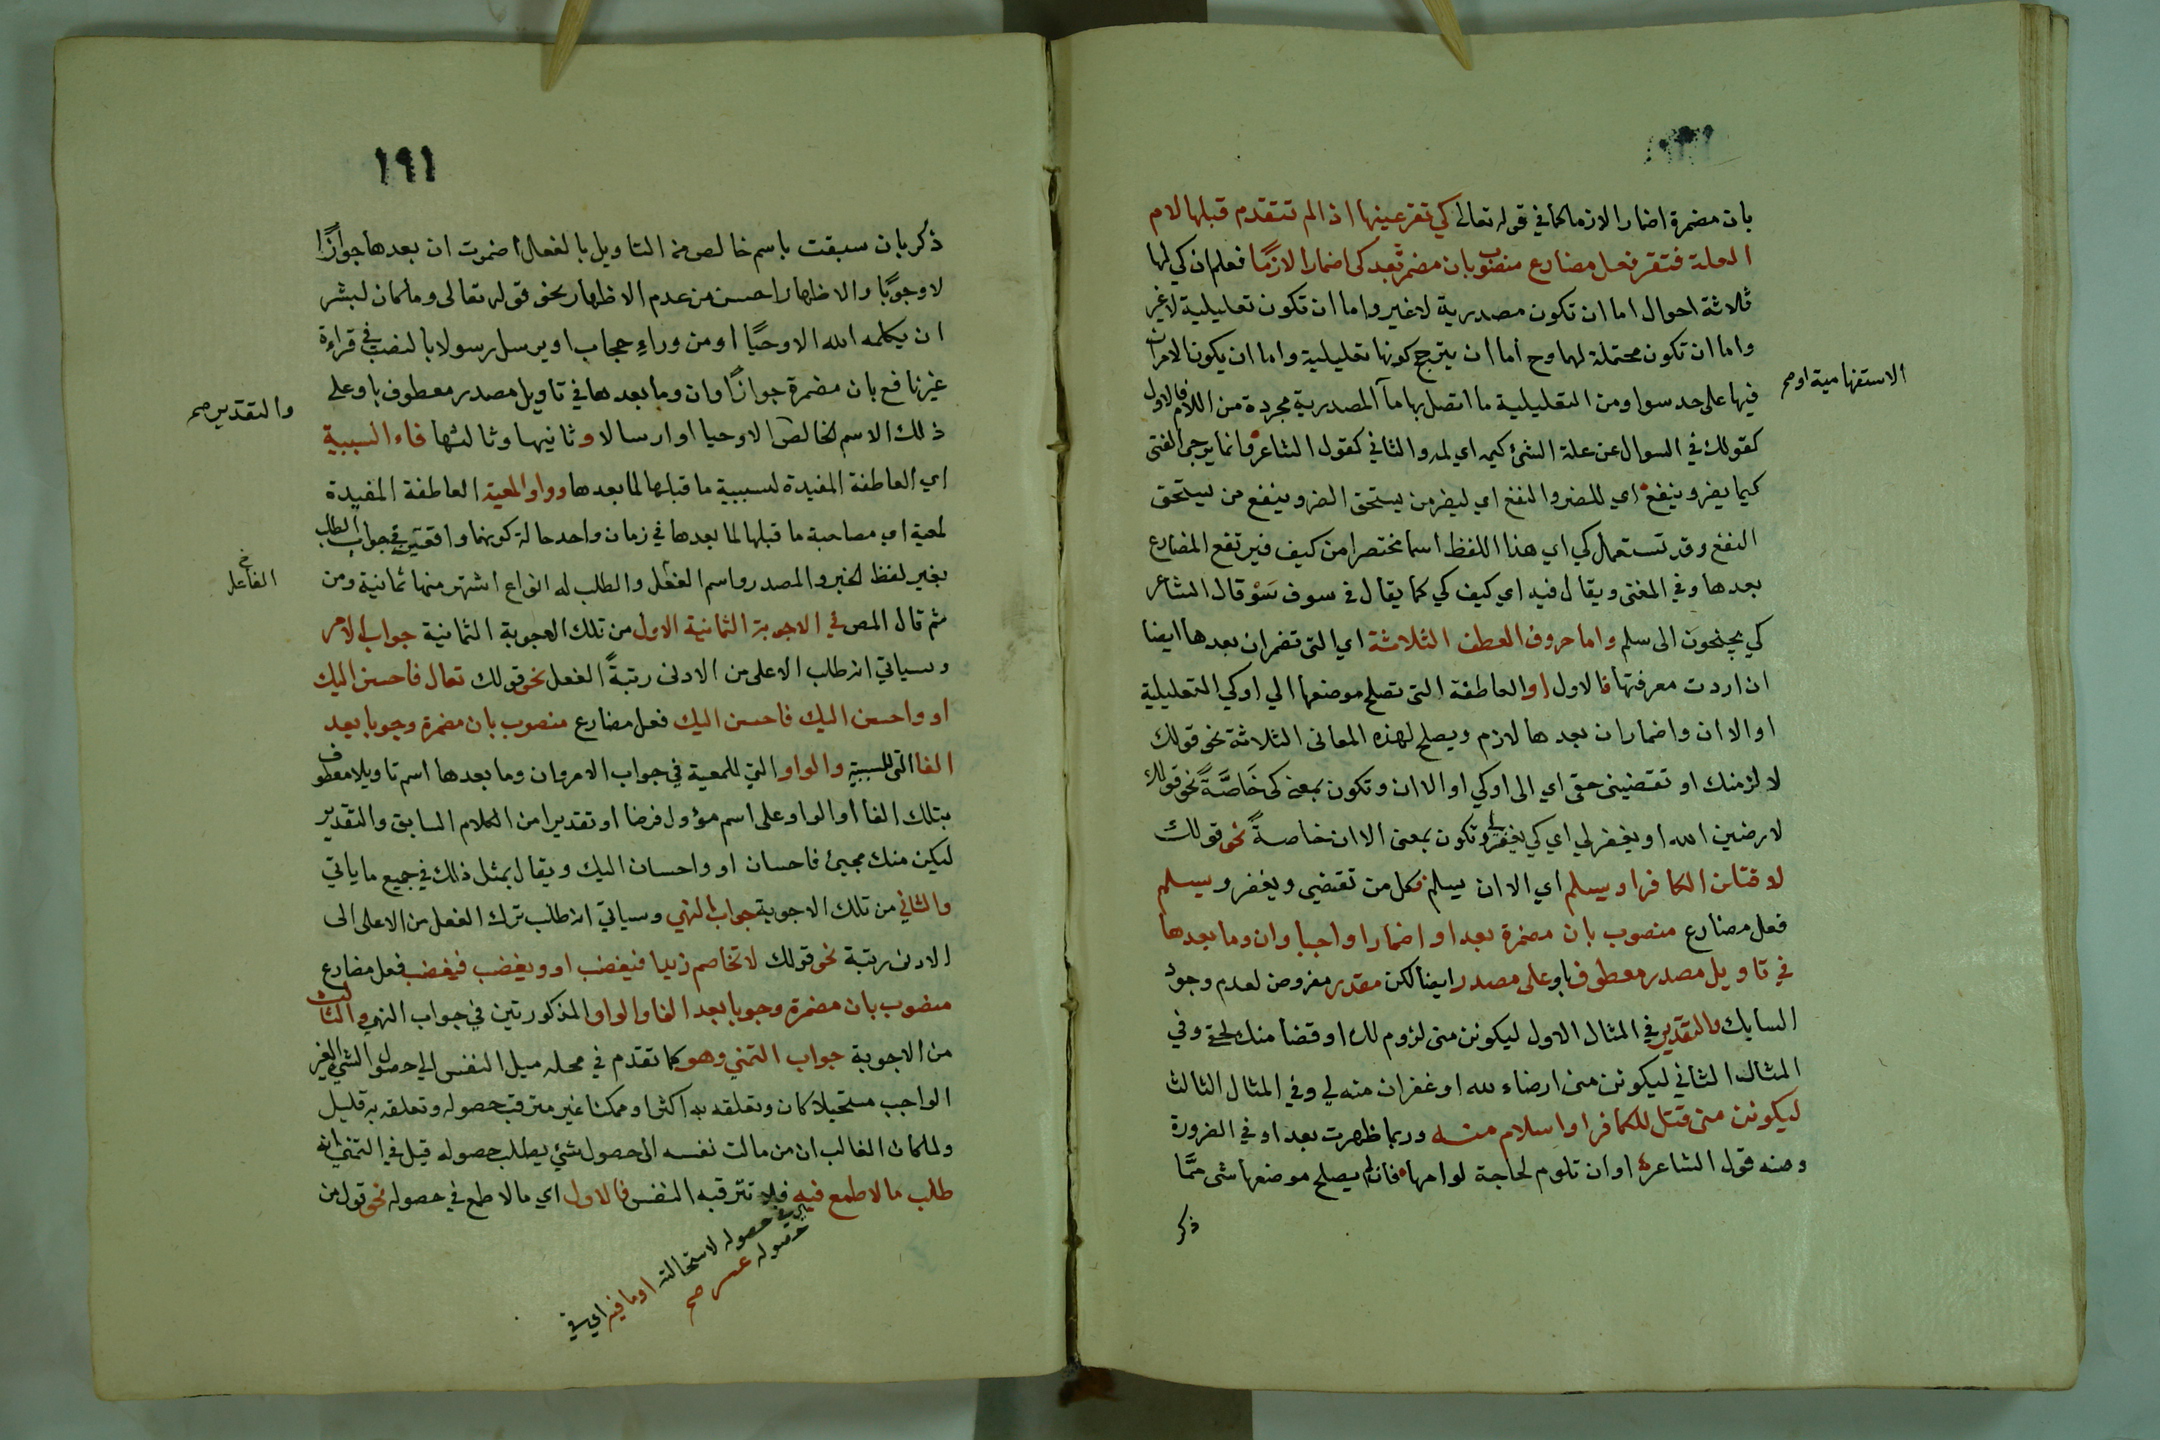 بان مضمرة اضمارا لازما كما في قوله تعالى كي تقر عينها اذا لم تتقدم قبلها لام
العلة فتقر فعل مضارع منصوب بان مضمرة بعد كي اضمارا لازمًا فعلم ان كي لها
ثلاثة احوال اما ان تكون مصدرية لا غير واما ان تكون تعليلية لا غير
واما ان تكون محتملة لهما وح اما ان يترجح كونها تعليلية واما ان يكون الامران
فيها على حد سوا ومن التعليلية ما اتصل بها ما المصدرية مجردة من اللام فالاول
الاستفهامية او صح
كقولك في السوال عن علة الشئ كيمه اي لمه والثاني كقول الشاعر وانما يرجى الفتى
كيما يضر وينفع اي للضر والنفع اي ليضر من يستحق الضر وينفع من يستحق
النفع وقد تستعمل كي اي هذا اللفظ اسما مختصرا من كيف فيرتفع المضارع
بعدها وفي المغنى ويقال فيه اي كيف كي كما يقال في سوف سَوْ قال الشاعر
كي يجنحون الى سلم واما حروف العطف الثلاثة اي التى تضمر ان بعدها ايضا
ان اردت معرفتها فالاول او العاطفة التى تصلح موضعها الى او كي التعليلية
او الا ان واضمار ان بعدها لازم ويصلح لهذه المعاني الثلاثة نحو قولك
لالزمنك او تقضينى حقى اي الى او كي او الا ان وتكون بمعنى كى خَاصَّةً نحو قولك
لارضين الله او يغفر لي اي كي يغفر لي وتكون بمعنى الا ان خاصةً نحو قولك
لاقتلن الكافر او يسلم اي الا ان يسلم فكل من تقضي ويغفر ويسلم
فعل مضارع منصوب بان مضمرة بعد او اضمارا واجبا وان وما بعدها
في تاويل مصدر معطوف باو على مصدر ايضا لكن مقدر مفروض لعدم وجود
السابك والتقدير في المثال الاول ليكونن منى لزوم لك او قضا منك لحقي وفي
المثال الثاني ليكونن منى ارضاء لله او غفران منه لي وفي المثال الثالث
ليكونن منى قتل للكافر او اسلام منه وربما ظهرت بعد او في الضرورة
ومنه قول الشاعر او ان تلوم لحاجة لوامها فان لم يصلح موضعها شى ممَّا
ذكر
١٩١
ذكر بان سبقت باسم خالص من التاويل بالفعل اضمرت ان بعدها جوازًا
لا وجوبًا والاظهار احسن من عدم الاظهار نحو قوله تعالى وما كان لبشر
ان يكلمه الله الا وحيًا او من وراءِ حجاب او يرسل رسولا بالنصب في قراءة
غير نافع بان مضمرة جوازًا وان وما بعدها في تاويل مصدر معطوف باو على
والتقدير صح
ذلك الاسم الخالص الا وحيا او ارسالا وثانيها وثالثها فاء السببية
اي العاطفة المفيدة لسببية ما قبلها لما بعدها وواو المعية العاطفة المفيدة
لمعية اي مصاحبة ما قبلها لما بعدها في زمان واحد حالة كونهما واقعتين في جواب الطلب
بغير لفظ الخبر والمصدر واسم الفعل والطلب له انواع اشتهر منها ثمانية ومن
الفاعل خ
ثم قال المص في الاجوبة الثمانية الاول من تلك الاجوبة الثمانية جواب الامر
وسياتي انه طلب الاعلى من الادنى رتبةً الفعل نحو قولك تعال فاحسن اليك
او واحسن اليك فاحسن اليك فعل مضارع منصوب بان مضمرة وجوبا بعد
الفا التى للسببية والواو التي للمعية في جواب الامر وان وما بعدها اسم تاويلا معطوف
بتلك الفا او الواو على اسم مؤول فرضا او تقديرا من الكلام السابق والتقدير
ليكن منك مجيئ فاحسان او واحسان اليك ويقال بمثل ذلك في جميع ما ياتي
والثاني من تلك الاجوبة جواب النهي وسياتي انه طلب ترك الفعل من الاعلى الى
الادنى رتبة نحو قولك لا تخاصم زيدا فيغضب او ويغضب فيغضب فعل مضارع
منصوب بان مضمرة وجوبا بعد الفا والواو المذكورتين في جواب النهي والثالث
من الاجوبة جواب التمني وهو كما تقدم في محله ميل النفس الي حصول الشي الغير
الواجب مستحيلا كان وتعلقه به اكثر او ممكنا غير مترقب حصوله وتعلقه به قليل
ولما كان الغالب ان من مالت نفسه الى حصول شئ يطلب حصوله قيل في التمني انه
طلب ما لا طمع فيه فلا تترقبه النفس فالاول اي ما لا طمع في حصوله نحو قول من
حصوله لاستحالته او ما فيه اي في
حصوله عسر صح